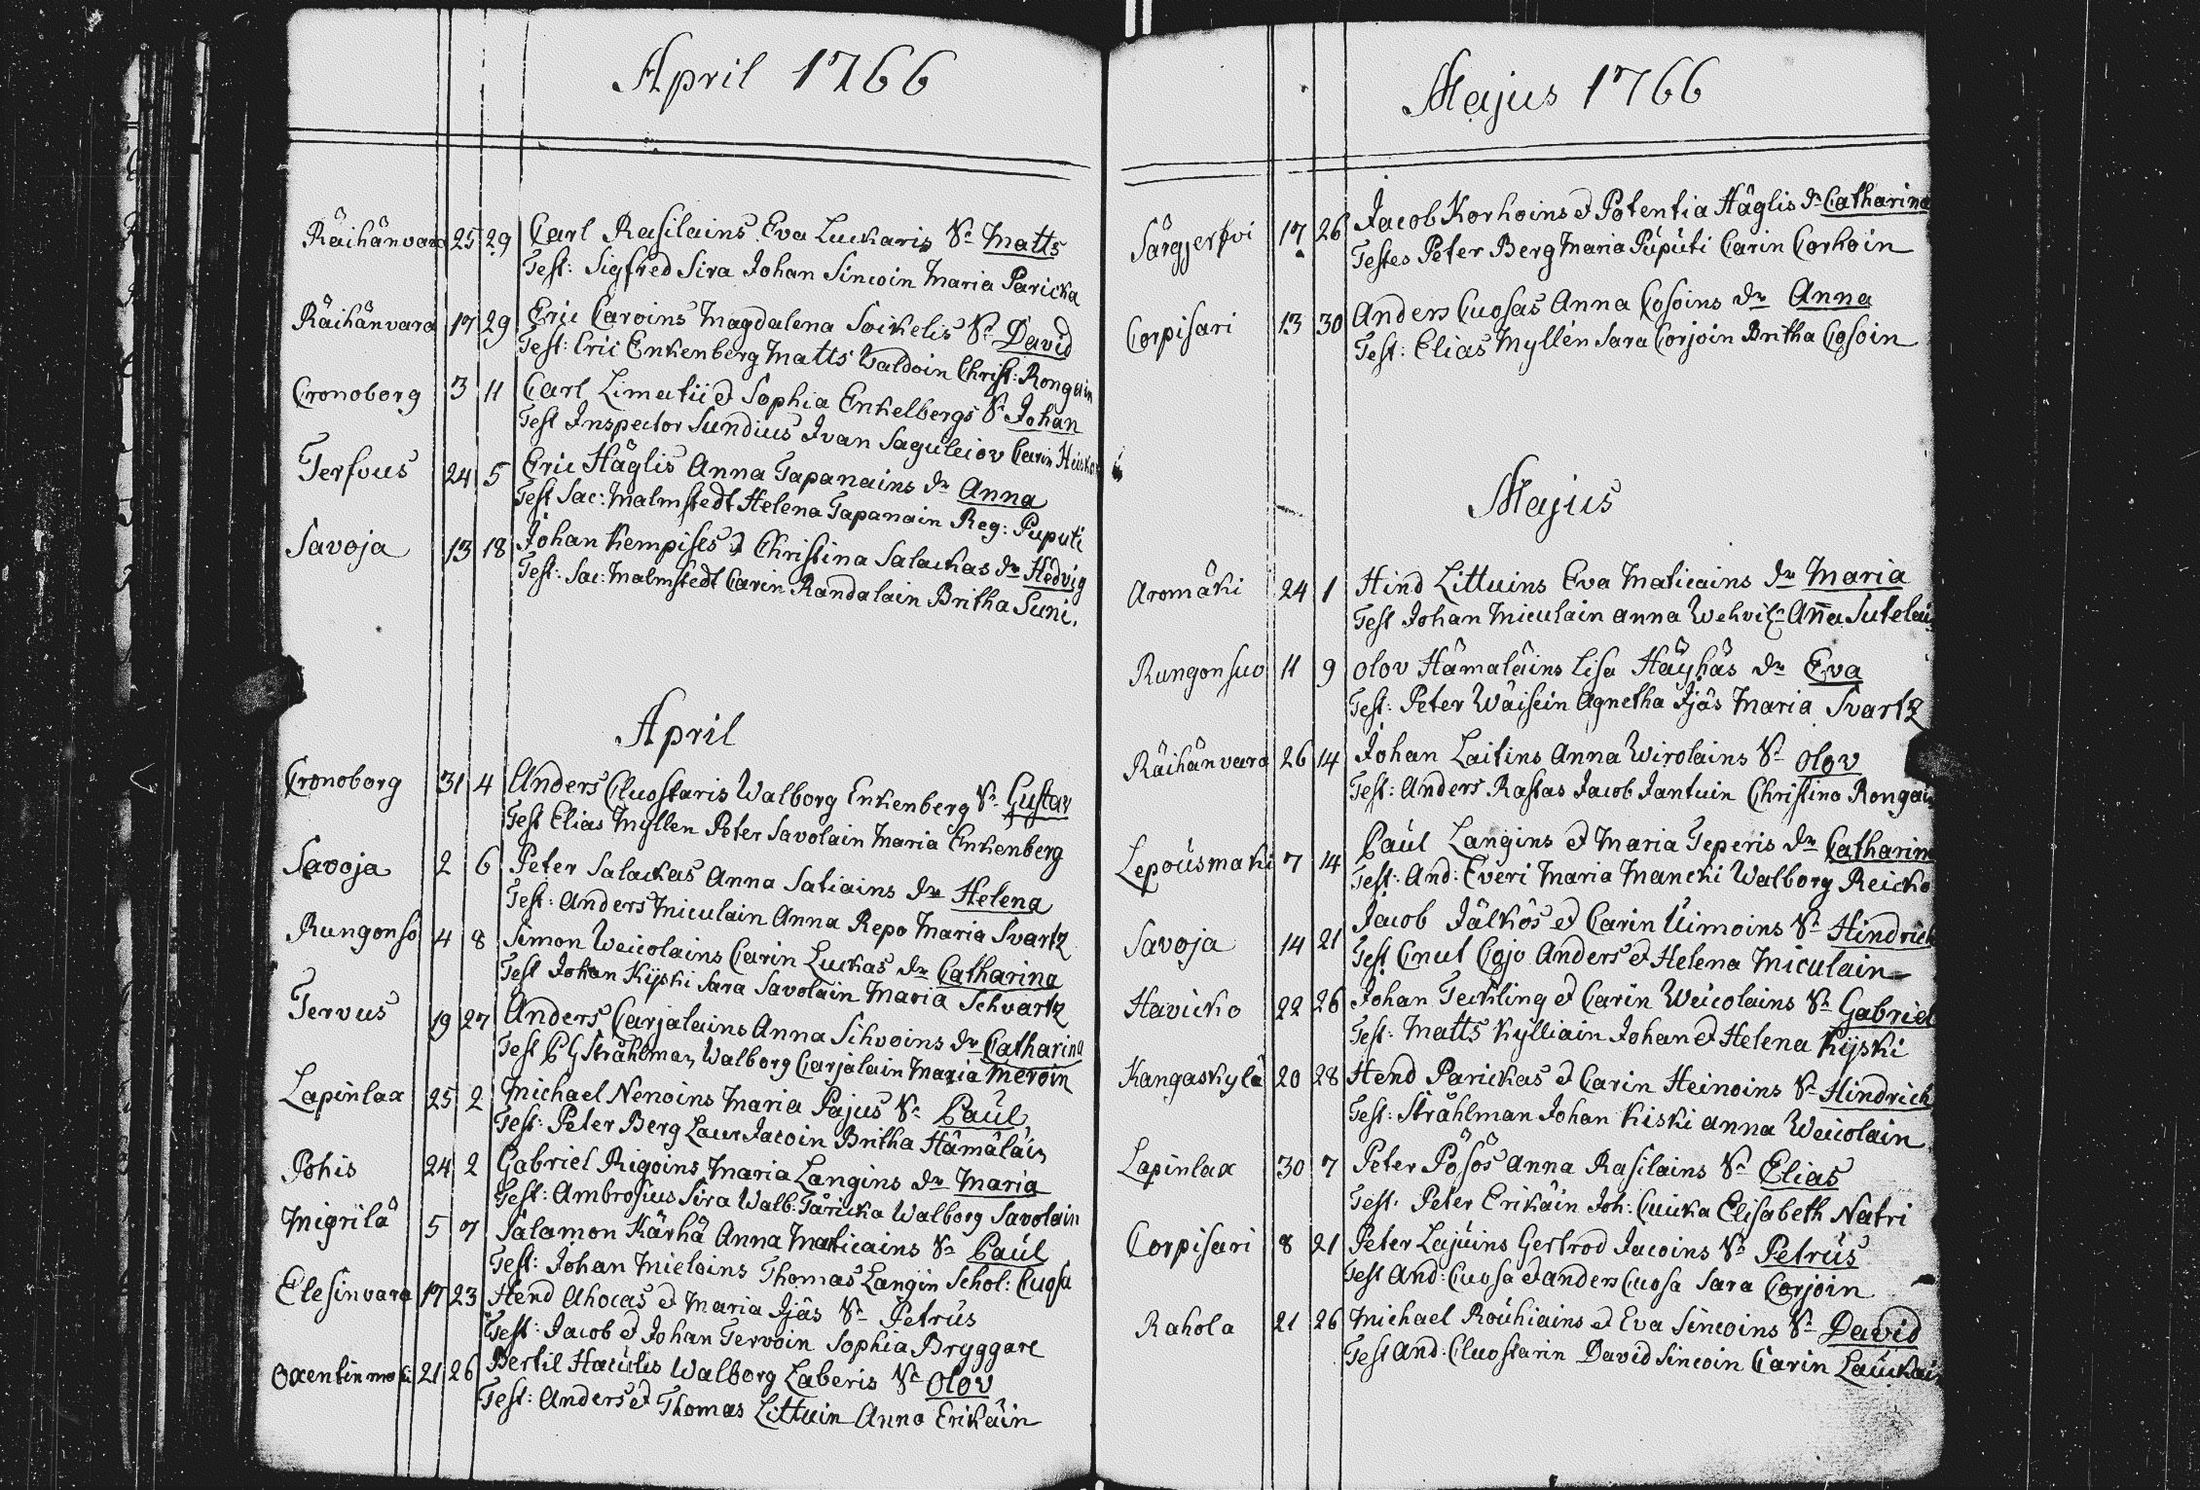 April 1766
Räihänvara 25 29 Carl Rasilains Eva Luckaris Sn Matts
Test: Sigfred Sira Johan Sincoin Maria Paricka
Räihänvara 17 29 Eric Caroins Magdalena Soikelis Sn David
Test: Eric Enkenberg Matts Waldoin Christ: Rongain
Cronoborg 3 11 Carl Limatii et Sophia Enkelbergs Sn Johan
Test Inspector Sundius Ivan Saguleiov Carin
Terfvus 24 5 Eric Häglis Anna Tapanains dr Anna
Test Sac: Malmstedt Helena Tapanain Reg: Puputi
Savoja 13 18 Johan Kempises et Christina Salackas dr Hedvig
Test: Sac: Malmstedt Carin Randalain Britha Suni.
April
Cronoborg 31 4 Anders Cluostaris Walborg Enkenberg Sn Gustav
Test Elias Myllen Peter Savolain Maria Enkenberg
Savoja 2 6 Peter Salackas Anna Satiains dr Helena
Test: Anders Miculain Anna Repo Maria Svartz
Rungonso 4 8 Simon Weicolains Carin Luckas dr Catharina
Test Johan Kijski Sara Savolain Maria Schvartz
Tervus 19 27 Anders Carjalains Anna Sihvoins dr Catharina
Test C G Stråhlman, Walborg Carjalain Maria Meroin
Lapinlax 25 2 Michael Nenoins Maria Pajus Sn Paul,
Test: Peter Berg Laur Jacoin Britha Hämäläin
Pohis 24 2 Gabriel Rigoins Maria Langins dr Maria
Test: Ambrosius Sira Walb: Täricka Walborg Savolain
Migrilä 5 7 Salamon Kärhä Anna Maticains Sn Paul
Test: Johan Mieloins Thomas Langin Schol: Cuosa
Elesinvara 17 23 Hend Ahocas et Maria Ijäs Sn Petrus
Test: Jacob et Johan Tervoin Sophia Bryggare
Oxentinmäki 21 26 Bertil Haculis Walborg Laberis Sn Olov
Test: Anders et Thomas Littuin Anna Erikäin
Majus 1766
Särgjerfvi 17 26 Jacob Korhoins et Potentia Häglis dr Catharina
Testes Peter Berg Maria Puputi Carin Corhoin
Corpisari 13 30 Anders Cuosas Anna Cosoins dr Anna
Test: Elias Myllén Sara Corjoin Britha Cosoin
Majus
Aromäki 24 1 Hind Littuins Eva Maticains dr Maria
Test Johan Miculain Anna Wehvil: Aña Sutelain
Rungonsuo 11 9 Olov Hämaläins Lisa Häyhäs dr Eva
Test: Peter Wäisein Agnetha Ijäs Maria Svartz
Räihänvara 26 14 Johan Laitins Anna Wirolains Sn Olov
Test: Anders Rastas Jacob Jantuin Christina Rongain
Lepousmaki 7 14 Paul Langins et Maria Teperis dr Catharina
Test: And: Everi Maria Mancki Walborg Reicko
Savoja 14 21 Jacob Jälkös et Carin Uimoins Sn Hindrich
Test Cnut Cojo Anders et Helena Miculain
Havicko 22 26 Johan Teckling et Carin Weicolains Sn Gabriel
Test: Matts Kylliain Johan et Helena Kijski
Kangaskylä 20 28 Hend Parickas et Carin Heinoins Sn Hindrich
Test: Stråhlman Johan Kiski Anna Weicolain
Lapinlax 30 7 Peter Pösös Anna Rasilains Sn Elias
Test: Peter Erikäin Joh: Cuicka Elisabeth Natri
Corpisari 8 21 Peter Lajuins Gertrod Jacoins Sn Petrus
Test And: Cuosa et Anders Cuosa Sara Corjoin
Rahola 21 26 Michael Rouhiains et Eva Sincoins Sn David
Test And: Cluostarin David Sincoin Carin Lauckain